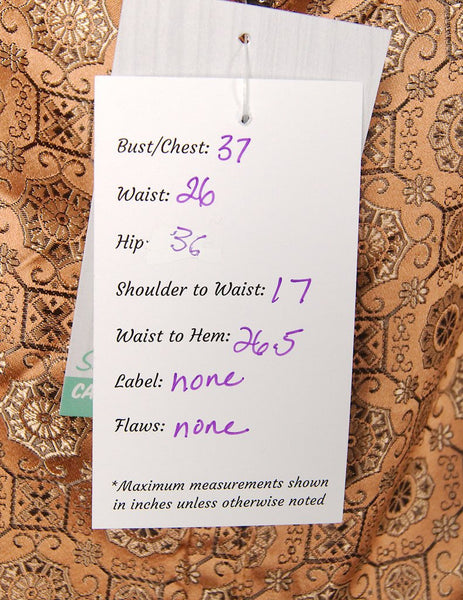 Bust/Chest: 37
Waist: 26
Hip: 36
Shoulder to Waist: 17
Waist to Hem: 26.5
Label: none
Flaws: none
*Maximum measurements shown
in inches unless otherwise noted